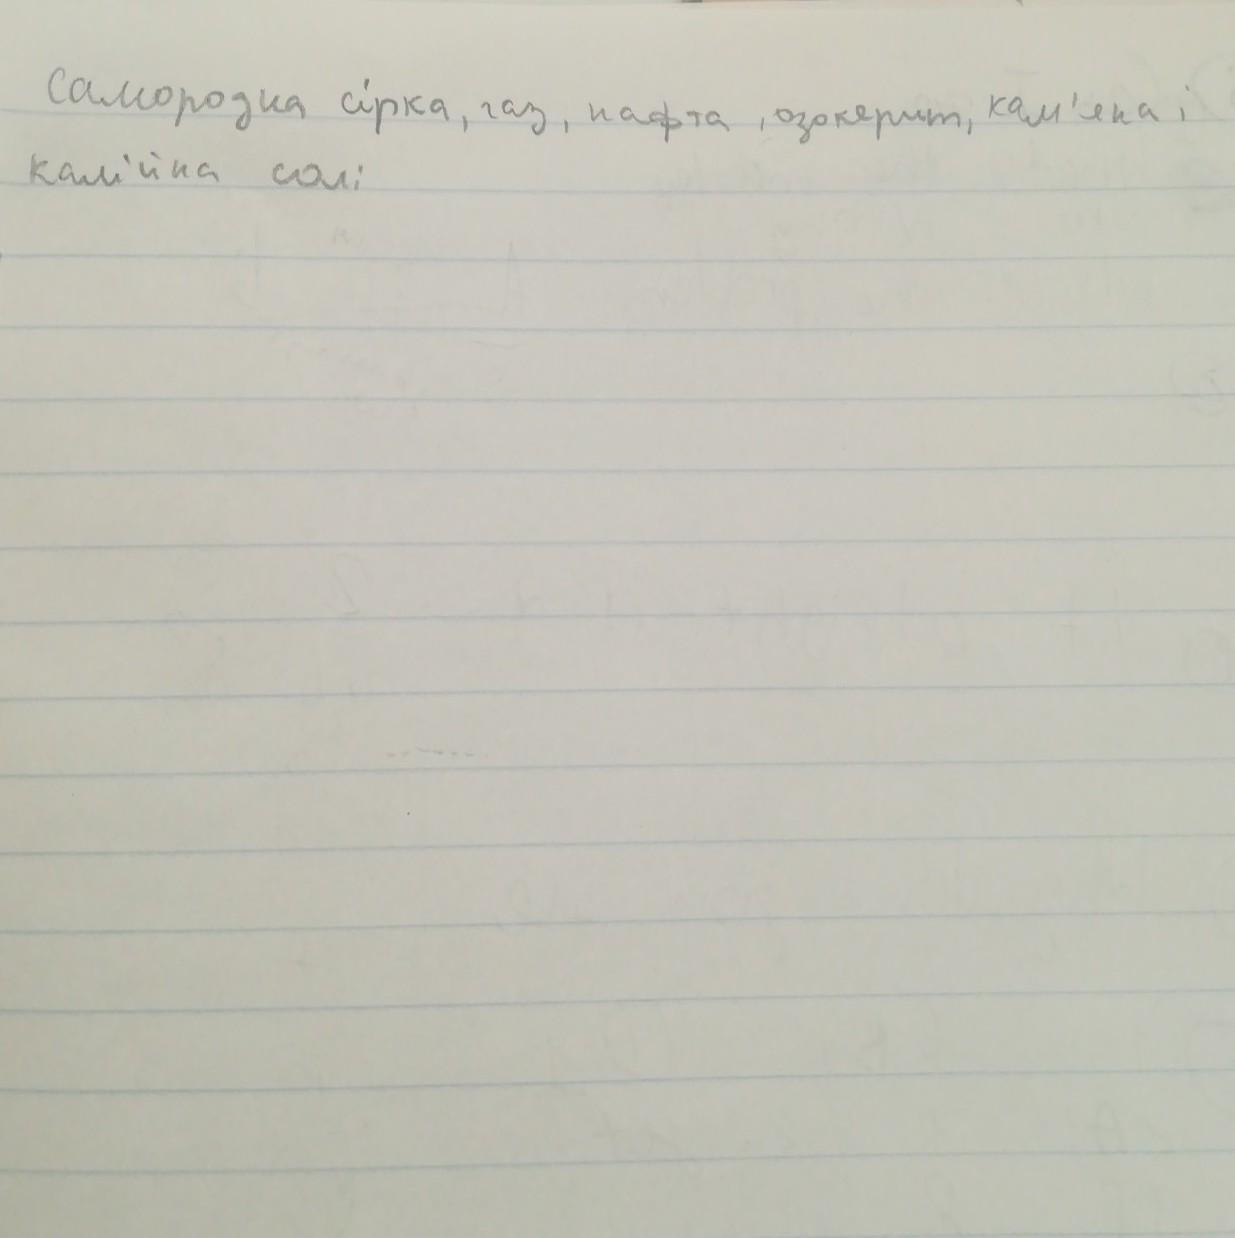 Самородна сірка, газ, нафта, озокерит, кам'яна і
калійна солі